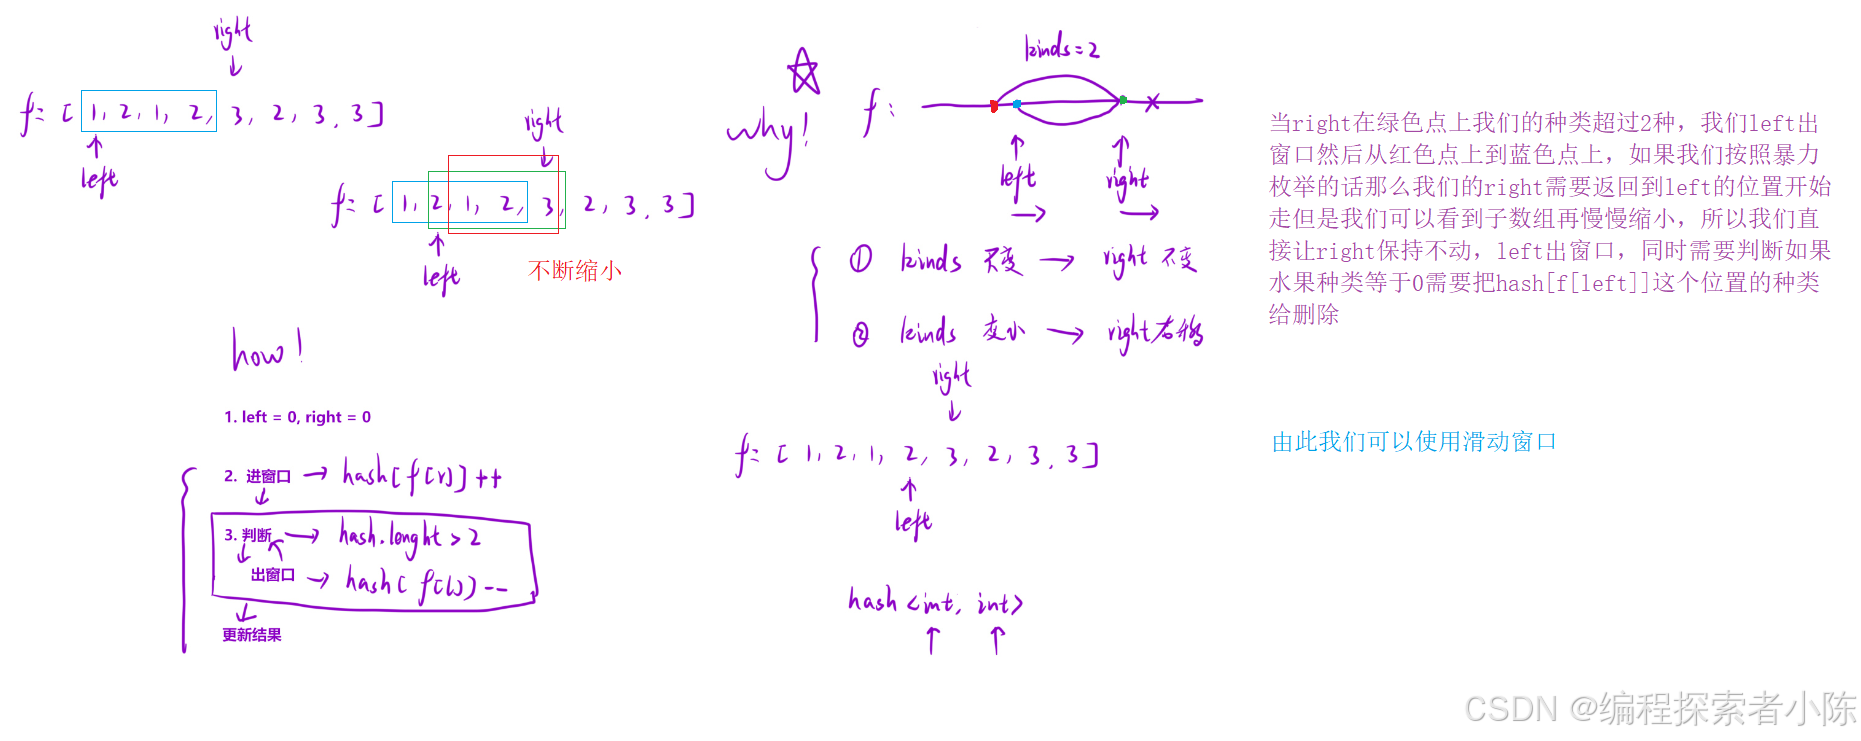 right
f = [ 1, 2, 1, 2, 3, 2, 3, 3 ]
left
right
f = [ 1, 2, 1, 2, 3, 2, 3, 3 ]
left
不断缩小
how!
1. left = 0, right = 0
2. 进窗口 → hash[f[r]]++
3. 判断 → hash.lenght > 2
出窗口 → hash[f[l]]--
更新结果
why!
kinds = 2
f:
left
right
① kinds 不变 → right 不变
② kinds 变小 → right右移
right
f = [ 1, 2, 1, 2, 3, 2, 3, 3 ]
left
hash <int, int>
当right在绿色点上我们的种类超过2种，我们left出
窗口然后从红色点上到蓝色点上，如果我们按照暴力
枚举的话那么我们的right需要返回到left的位置开始
走但是我们可以看到子数组再慢慢缩小，所以我们直
接让right保持不动，left出窗口，同时需要判断如果
水果种类等于0需要把hash[f[left]]这个位置的种类
给删除
由此我们可以使用滑动窗口
CSDN @编程探索者小陈